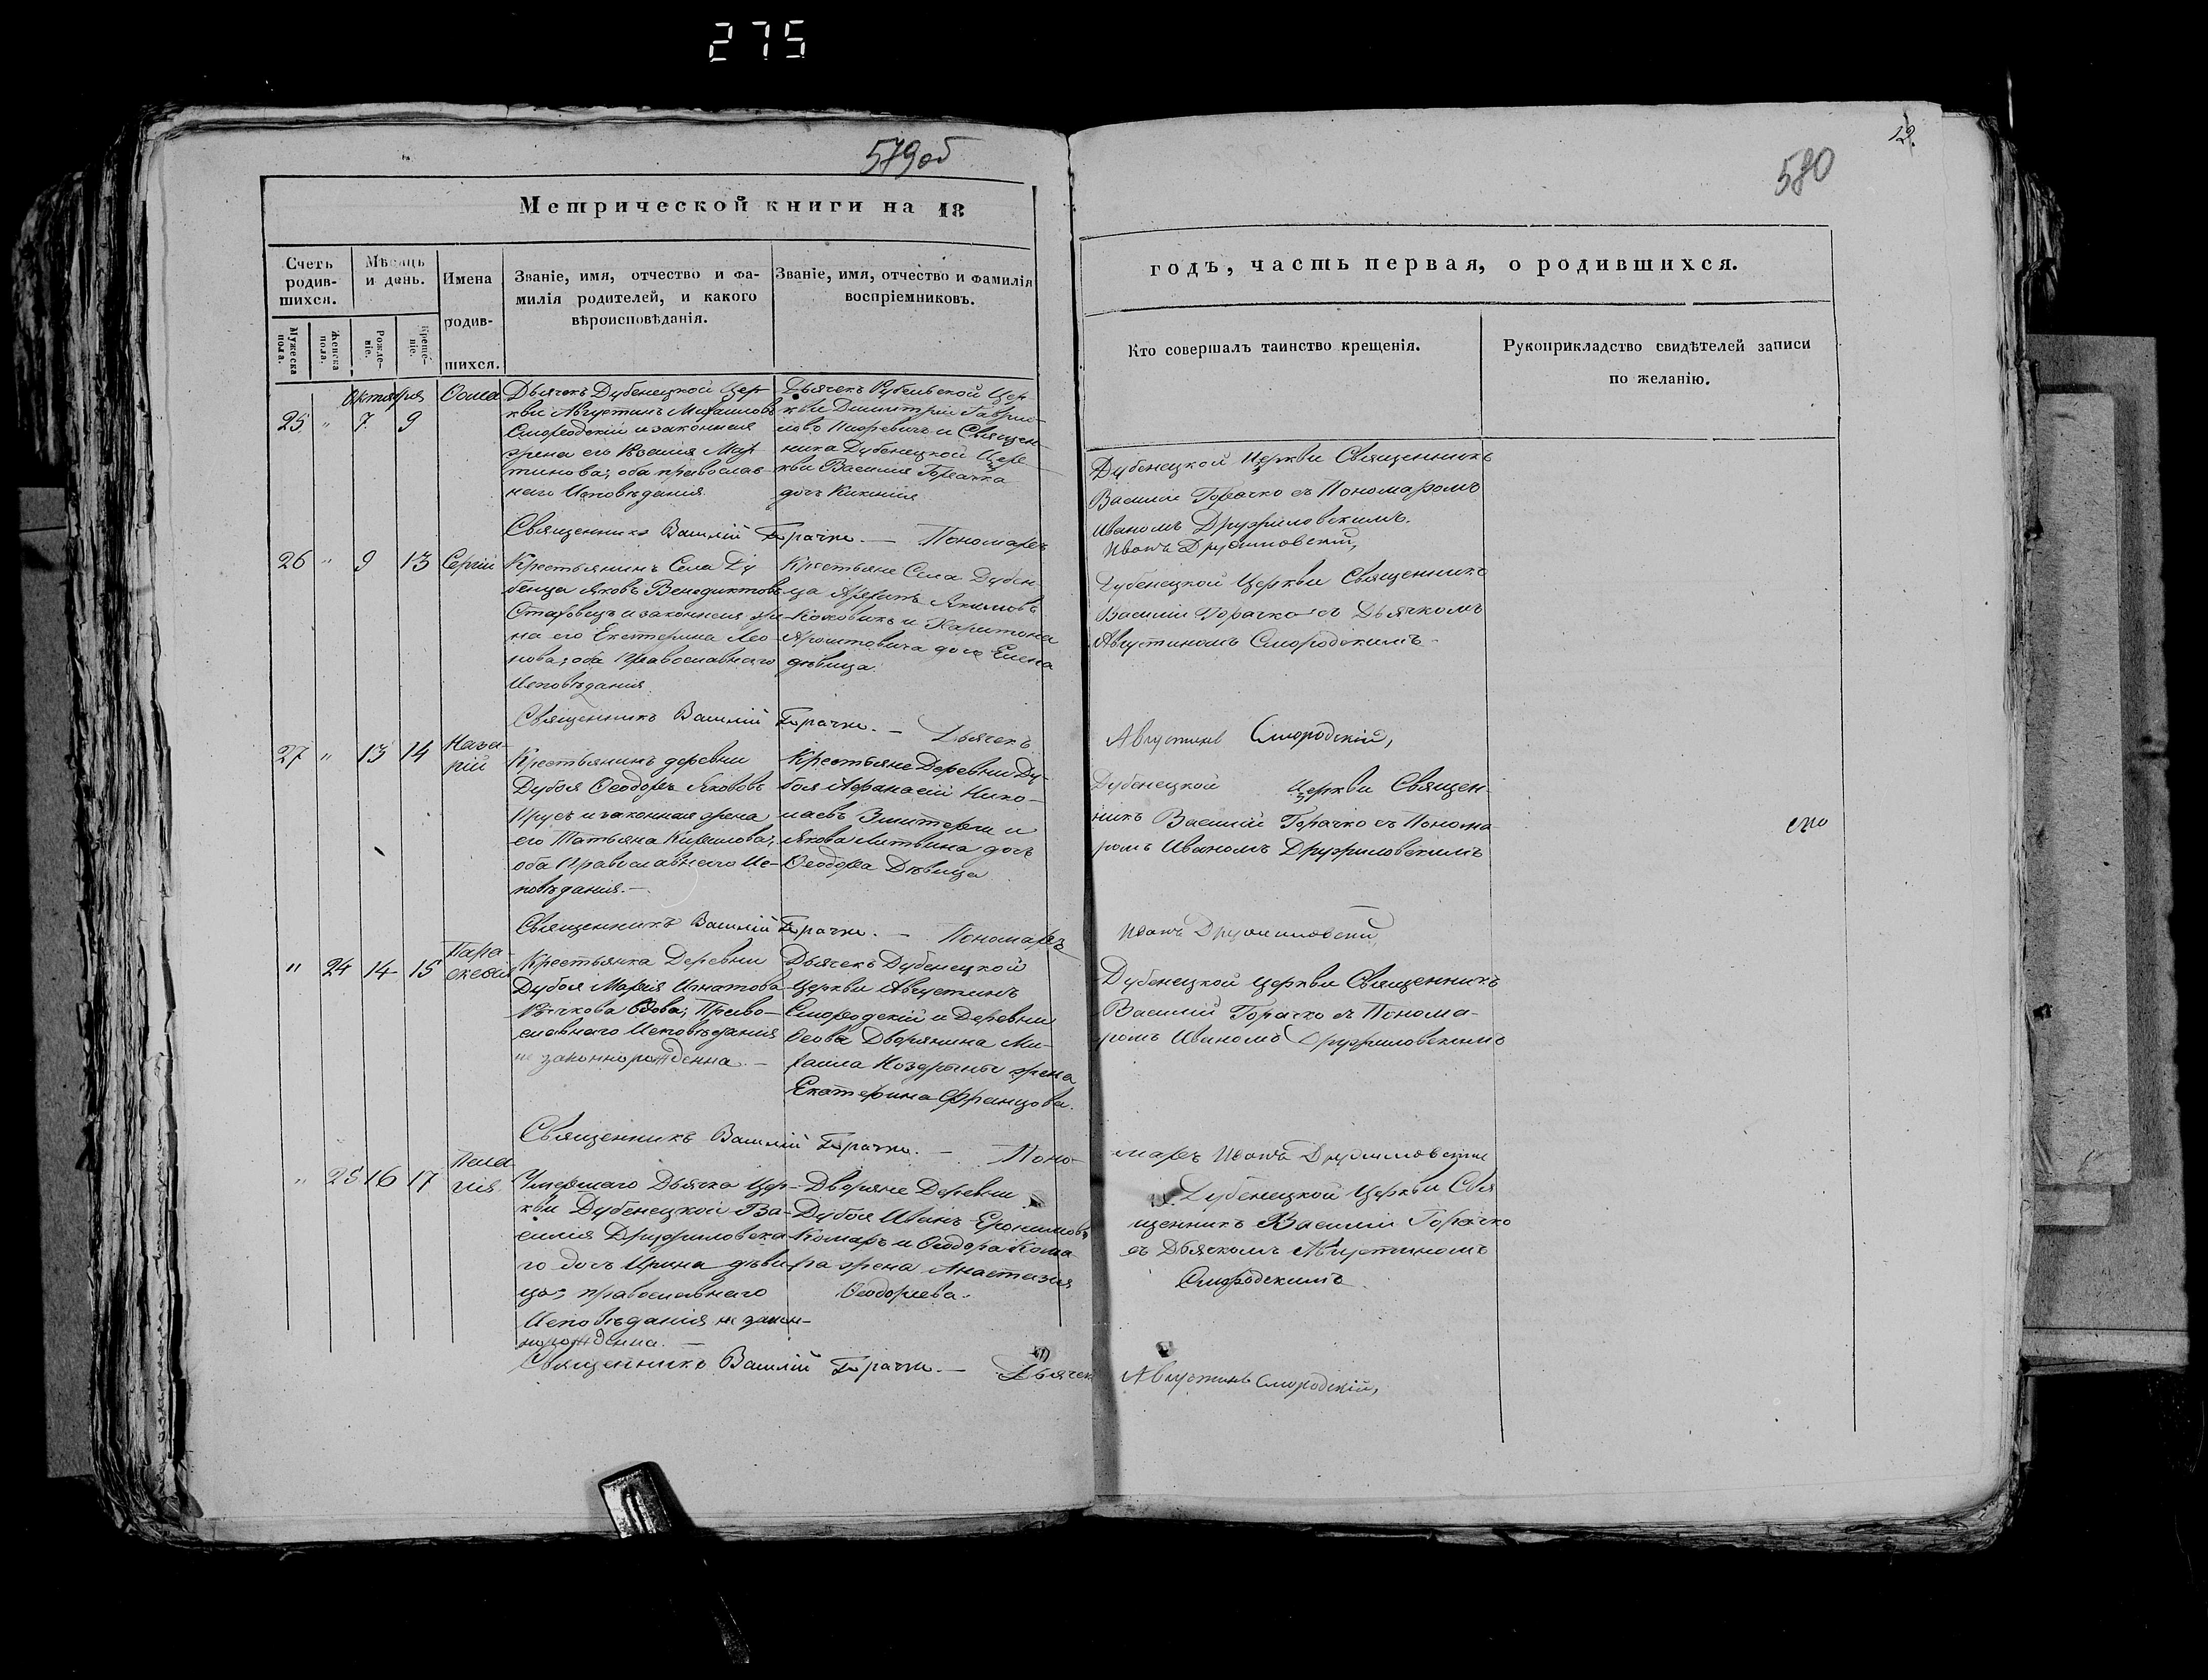 275
579об
12.
580
Метрической книги на 18
годъ, часть первая, о родившихся.
Счетъ родив-шихся.
Мѣсяцъ и день.
Имена родив-шихся.
Званіе, имя, отчество и фа-
милія родителей, и какого
вѣроисповѣданія.
Званіе, имя, отчество и фамилія
воспріемниковъ.
Мужеска пола.
Женска пола.
Рожде-ніе.
Креще-ніе.
Кто совершалъ таинство крещенія.
Рукоприкладство свидѣтелей записи
по желанію.
Октября
25 " 7 9
Ѳома
Дьячекъ Дубенецкой Цер
кви Августинъ Михаиловъ
Смородскій и законная
жена его Мар
тинова; оба православ
наго Исповѣданія
Дьячекъ Рубельской Цер
кви Димитрій Гаври-
ловъ и Священ-
ника Дубенецкой Цер
кви Василія Горачка
дочь
Дубенецкой Церкви Священникъ
Василій Горачко съ Пономаромъ
Иваномъ Дружиловскимъ.
Священникъ Василій Горачко. — Пономарь
Иванъ Дружиловскій,
26 " 9 13
Сергій
Крестьянинъ Села Ду
бенца Яковъ Венедиктовъ
и законная же
на его Екатерина Лео
нова; оба Православнаго
Исповѣданія
Крестьяне Села Дубен
ца Якимовъ
и Харитона
дочь Елена
дѣвица.
Дубенецкой Церкви Священникъ
Василій Горачко съ Дьячкомъ
Августиномъ Смородскимъ
Священникъ Василій Горачко. — Дьячекъ
Августинъ Смородскій,
27 " 13 14
Наза-
рій
Крестьянинъ деревни
Дубоя Ѳеодоръ Яковъ
Прусъ и законная жена
его Татьяна Кирилова;
оба Православнаго Ис-
повѣданія. —
Крестьяне Деревни Ду-
боя Афанасій Нико-
лаевъ и
Якова Литвина дочь
Ѳеодора Дѣвица
Дубенецкой Церкви Священ-
никъ Василій Горачко съ Понома
ромъ Иваномъ Дружиловскимъ
Священникъ Василій Горачко. — Пономарь
Иванъ Дружиловскій
" 24 14 15
Пара
скевія
Крестьянка Деревни
Дубоя Марія Игнатова
Вдова; Право-
славнаго Исповѣданія
не законнорожденна. —
Дьячекъ Дубенецкой
Церкви Августинъ
Смородскій и Деревни
Осова Дворянина Ми-
хаила жена
Екатерина Францова.
Дубенецкой церкви Священникъ
Василій Горачко съ Понома-
ромъ Иваномъ Дружиловскимъ
Священникъ Василій Горачко. — Поно-
марь Иванъ Дружиловскій
" 25 16 17
Пела
гія
Умершаго Дьячка Цер-
кви Дубенецкой Ва-
силія Дружиловска
го дочь Ирина дѣви
ца; православнаго
Исповѣданія не закон-
норожденна. —
Дворяне Деревни
Дубоя Иванъ Еронимовъ
Комаръ и Ѳеодора Кома
ра жена Анастазія
Ѳеодорева.
Дубенецкой Церкви Свя
щенникъ Василій Горачко
съ Дьячкомъ Августиномъ
Смородскимъ
Священникъ Василій Горачко. — Дьячекъ
Августинъ Смородскій,